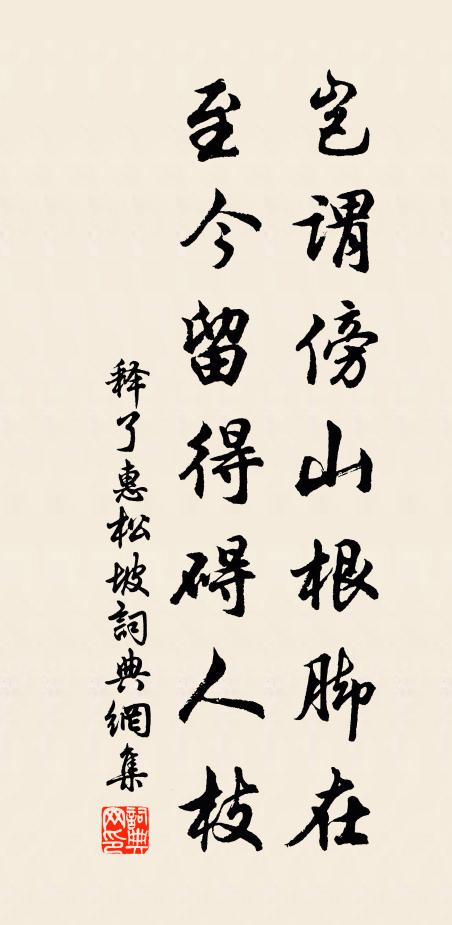 岂谓傍山根脚在
至今留得碍人枝
释了惠松坡詞典網集
詞典网印